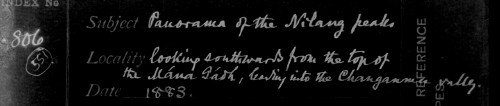 INDEX No
806
Subject Panorama of the Nilang peaks
Locality looking southwards from the top of
the Mana Gadh, leading into the Changanmu valley.
Date 1883.
REFERENCE